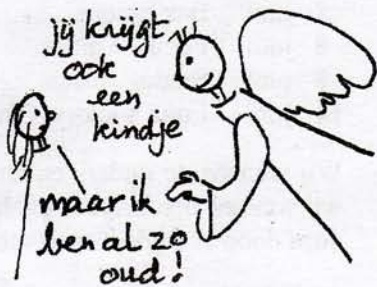 jij krijgt
ook
een
kindje
maar ik
ben al zo
oud!